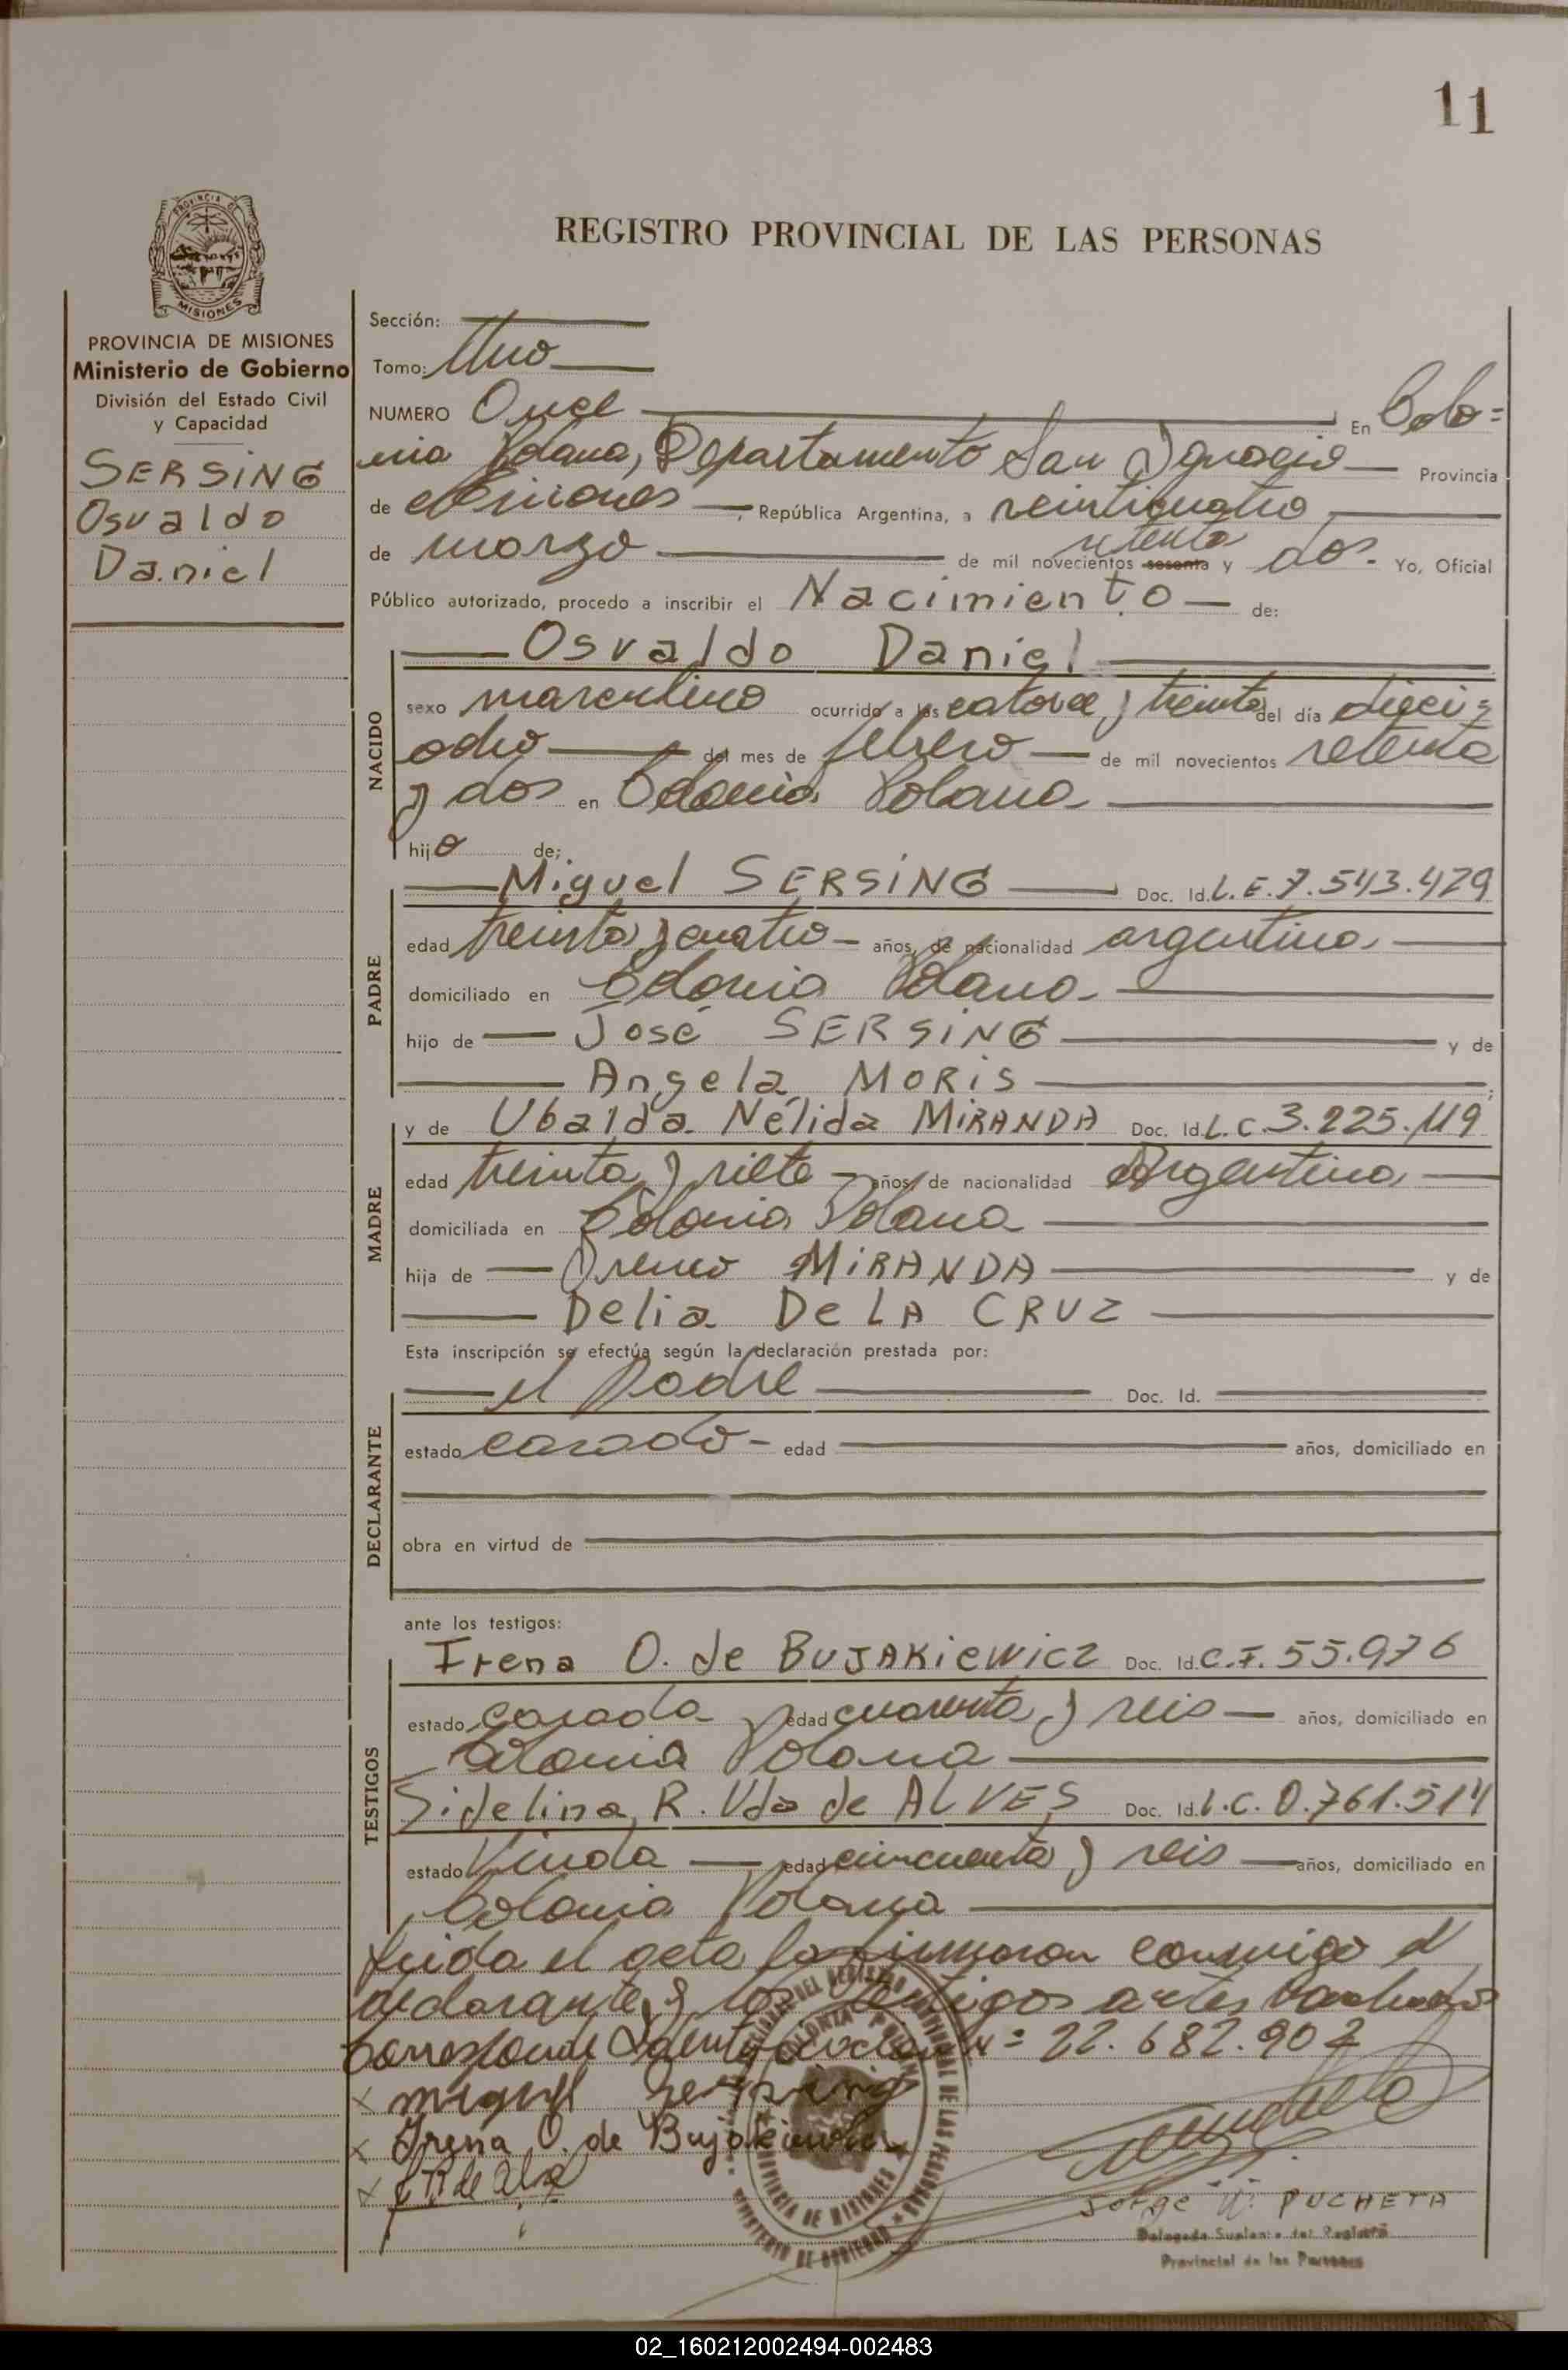 11
REGISTRO PROVINCIAL DE LAS PERSONAS
PROVINCIA DE MISIONES
Ministerio de Gobierno
División del Estado Civil
y Capacidad
SERSING
Osvaldo
Daniel
Sección:
Tomo: Uno
NUMERO Once En Colo=
nia Polana, Departamento San Ignacio Provincia
de Misiones, República Argentina, a veinticuatro
de marzo de mil novecientos sesenta setenta y dos. Yo, Oficial
Público autorizado, procedo a inscribir el Nacimiento de:
NACIDO
Osvaldo Daniel
sexo masculino ocurrido a las catorce y treinta del día dieci=
ocho del mes de febrero de mil novecientos setenta
y dos en Colonia Polana
hijo de:
PADRE
Miguel SERSING Doc. Id. L.E. 7.543.429
edad treinta y cuatro años, de nacionalidad argentina
domiciliado en Colonia Polana
hijo de José SERSING y de
Angela MORIS;
MADRE
y de Ubalda Nélida MIRANDA Doc. Id. L.C. 3.225.119
edad treinta y siete años, de nacionalidad Argentina
domiciliada en Colonia Polana
hija de Ireneo MIRANDA y de
Delia De LA CRUZ
Esta inscripción se efectúa según la declaración prestada por:
DECLARANTE
el Padre Doc. Id.
estado casado edad años, domiciliado en
obra en virtud de
ante los testigos:
TESTIGOS
Irena O. de BUJAKiewicz Doc. Id. C.I. 55.976
estado casada edad cuarenta y seis años, domiciliado en
Colonia Polana
Sidelina R. Vda de ALVES Doc. Id. L.C. 0.761.514
estado Viuda edad cincuenta y seis años, domiciliado en
Colonia Polana
Leida el acta la firmaron conmigo el
declarante y los testigos antes
corresponde Identificación Nº 22.682.902
x miguel Sersing
x Irena O. de Bujakiewicz
x
Jorge PUCHETA
Delegado Suplente del Registro
Provincial de las Personas
02_160212002494-002483